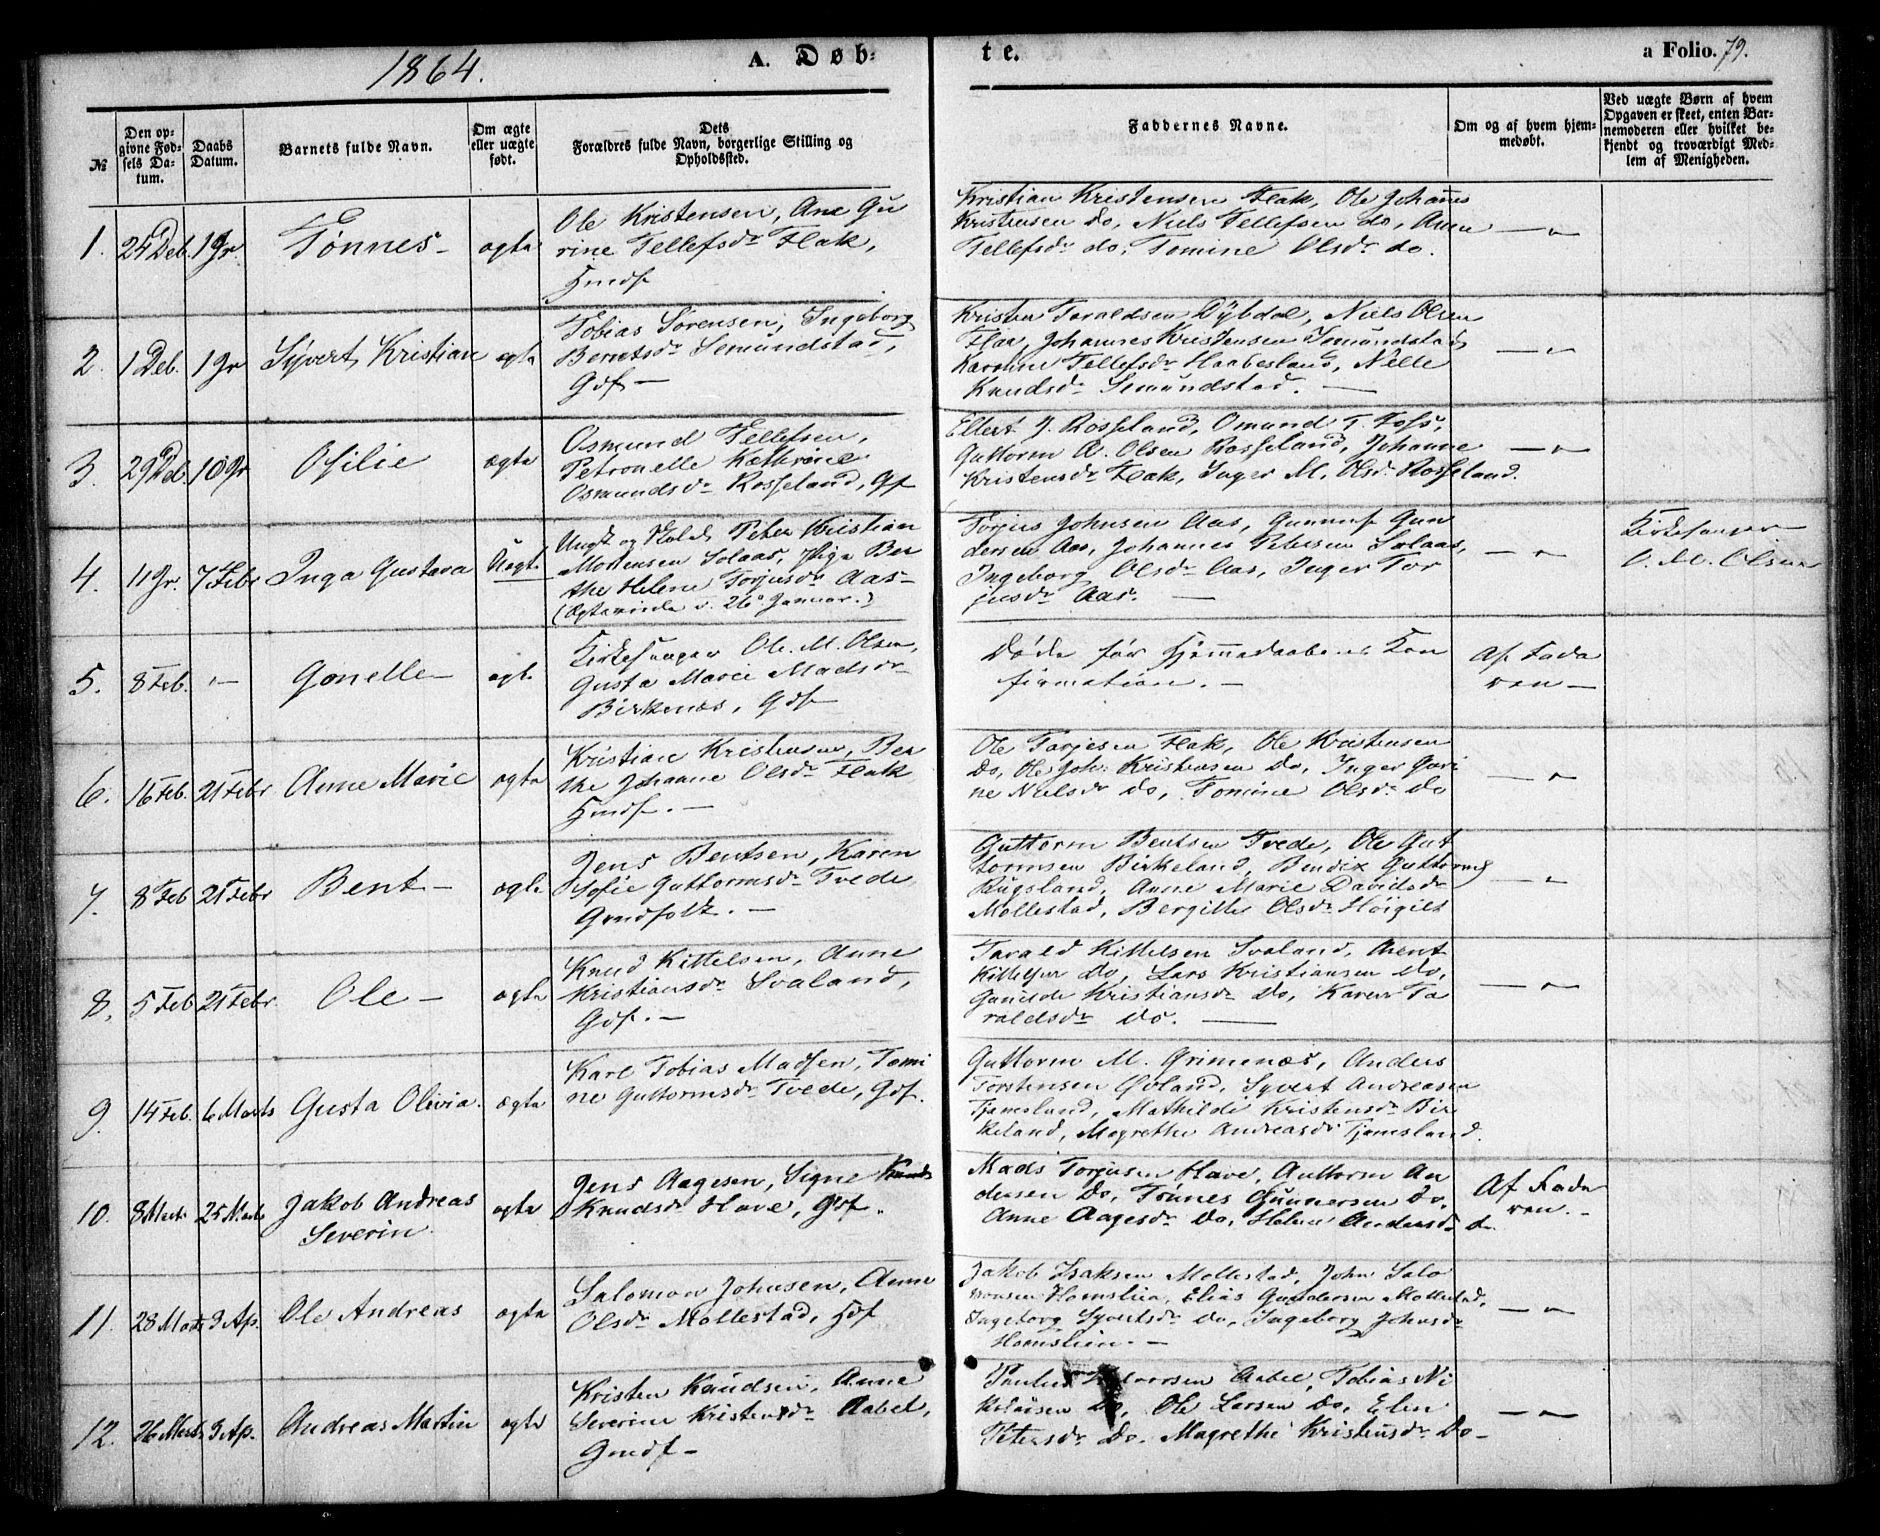 1864.
A. Døb-
te.
a Folio. 79.
№
Den op-
givne Fød-
sels Da-
tum.
Daabs
Datum.
Barnets fulde Navn.
Om ægte
eller uægte
født.
Dets
Forældres fulde Navn, borgerlige Stilling og
Opholdssted.
Faddernes Navne.
Om og af hvem hjem-
medøbt.
Ved uægte Børn af hvem
Opgaven er skeet, enten Bar-
nemoderen eller hvilket be-
kjendt og troværdigt Med-
lem af Menigheden.
1.
24 Deb.
1 Jr.
Tønnes-
ægte
Ole Kristensen, Ane Gu
rine Tellefsdr Flak,
Hmdf
Kristian Kristensen Flak, Ole Johannes
Kristensen do, Niels Tellefsen do, Anne
Tellefsdr do, Tomine Olsdr do.
— " —
2.
1 Deb.
1 Jr
Syvert Kristian
ægte
Tobias Sørensen, Ingeborg
Berntsdr Semundstad,
Gdf —
Kristen Taraldsen Dybdal, Niels Olsen
Flak, Johannes Kristensen Semundstad,
Karoline Tellefsdr Haabesland, Nille
Knudsdr Semundstad. —
— " —
3.
29 Deb.
10 Jr
Osilie
ægte
Osmund Tellefsen,
Petronelle Kathrine
Osmundsdr Rosseland, Gf
Ellert J. Rosseland, Omund T. Foss,
Guttorm A. Olsen Rosseland, Johanne
Kristensdr Flak, Inger M. Olsdr Rosseland.
— " —
4.
11 Jr.
7 Febr
Inga Gustava
Uægte
Ungk og Peter Kristian
Mortensen Solaas, Pige Ber
the Helene Torjusdr Aas-
(Ægteviede d. 26 Januar.)
Torjus Johnsen Aas, Gunnuf Gun
dersen Aas, Johannes Petersen Solaas,
Ingeborg Olsdr Aas, Inger Tor
jusdr Aas. —
— " —
Kirkesanger
O. M. Olsen
5.
8 Feb.
"—
Gonelle —
ægte
Kirkesanger Ole. M. Olsen,
Gusta Marie Madsdr
Birkenæs, Gdf
Døde før Hjemmedaabens Kon
firmation. —
Af Fade
ren —
6.
16 Feb.
21 Febr
Anne Marie
ægte
Kristian Kristensen, Ber
the Johanne Olsdr Flak
Hmdf. —
Ole Torjesen Flak, Ole Kristensen
Do, Ole Joh. Kristensen Do, Inger Guri
ne Nielsdr do, Tomine Olsdr Do
— " —
7.
8 Feb
21 Febr
Bent —
ægte
Jens Bentsen, Karen
Sofie Guttormsdr Tvede,
Grmdfolk. —
Guttorm Bentsen Tvede, Ole Gut
tormsen Birkeland, Bendix Guttorms
Rugsland, Anne Marie Davidsdr
Mollestad, Bergitte Olsdr Høigilt
— " —
8.
5 Feb
21 Febr.
Ole —
ægte
Knud Kittelsen, Anne
Kristiansdr Svaland,
Gdf. —
Tarald Kittelsen Svaland, Arent
Kittelsen Do, Lars Kristiansen Do,
Gunilde Kristiansdr Do, Karen Ta
raldsdr Do. —
— " —
9.
14 Feb.
6 Marts
Gusta Olivia.
ægte
Karl Tobias Madsen, Tomi
ne Guttormsdr Tvede, Gdf.
Guttorm M. Grimenæs, Anders
Torstensen Øvland, Syvert Andreasen
Tjamesland, Mathilde Kristensdr Bir
keland, Magrethe Andreasdr Tjamesland.
10.
8 Marts
25 Marts
Jakob Andreas
Severin.
ægte
Jens Aagesen, Signe Knuds
Knudsdr Have, Gdf.
Mads Torjusen Have, Guttorm An
dersen Do, Tønnes Gunnersen Do,
Anne Aagesdr Do, Helene Andersdr do
Af Fade
ren. —
11.
28 Marts
3 Ap.
Ole Andreas
ægte
Salomon Johnsen, Anne
Olsdr Mollestad, Hdf
Jakob Isaksen Mollestad, John Salo
monsen Homslien, Elias Gundersen Mollestad,
Ingeborg Syvertsdr Do, Ingeborg Johnsdr
Homslien. —
— " —
12.
26 Marts
3 Ap.
Andreas Martin
ægte
Kristen Knudsen, Anne
Severine Kristensdr Aabel,
Gmdf —
Aabel, Tobias Ni
kolaisen Do, Ole Larsen Do, Elen
Petersdr Do. Magrethe Kristensdr Do —
— " —